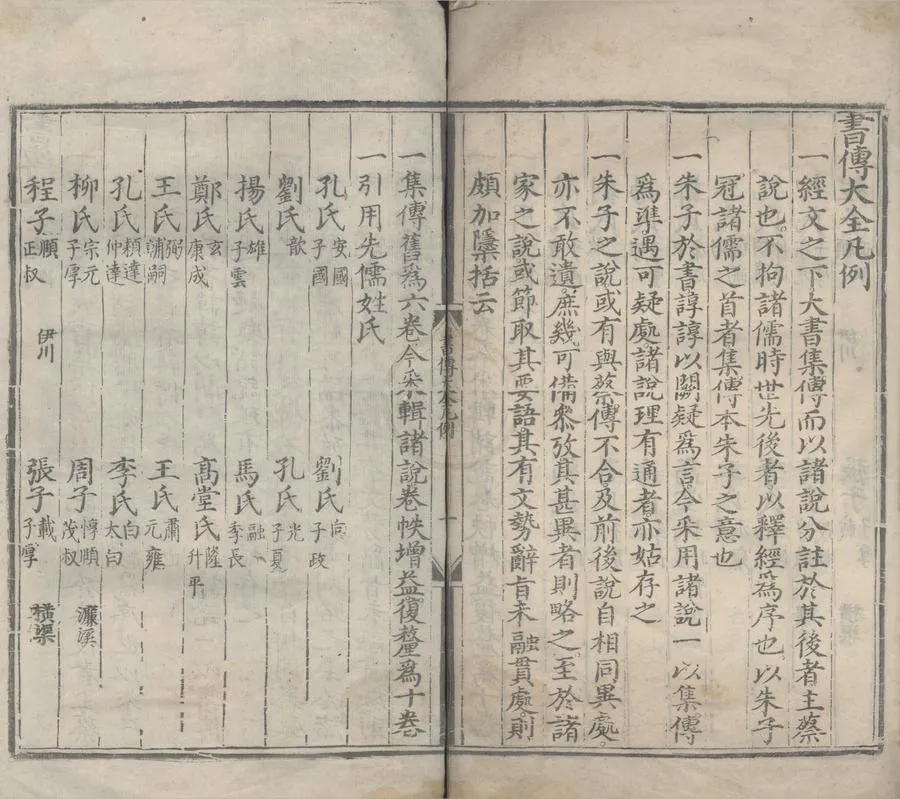 書傳大全凡例
一經文之下大書集傳而以諸說分註於其後者主蔡
說也不拘諸儒時世先後者以釋經爲序也以朱子
冠諸儒之首者集傳本朱子之意也
一朱子於書諄諄以闕疑爲言今采用諸說一以集傳
爲準遇可疑處諸說理有通者亦姑存之
一朱子之說或有與蔡傳不合及前後說自相同異處
亦不敢遺庶幾可備參攷其甚異者則略之至於諸
家之說或節取其要語其有文勢辭旨未融貫處則
頗加隱括云
書傳大全凡例 一
一集傳舊爲六卷今采輯諸說卷帙增益復釐爲十卷
一引用先儒姓氏
孔氏 安國 子國 劉氏 向 子政
劉氏 歆 孔氏 光 子夏
揚氏 雄 子雲 馬氏 融 季長
鄭氏 玄 康成 高堂氏 隆 升平
王氏 弼 輔嗣 王氏 肅 元雍
孔氏 穎達 仲達 李氏 白 太白
柳氏 宗元 子厚 周子 惇頤 茂叔 濂溪
程子 順 正叔 伊川 張子 載 子厚 橫渠